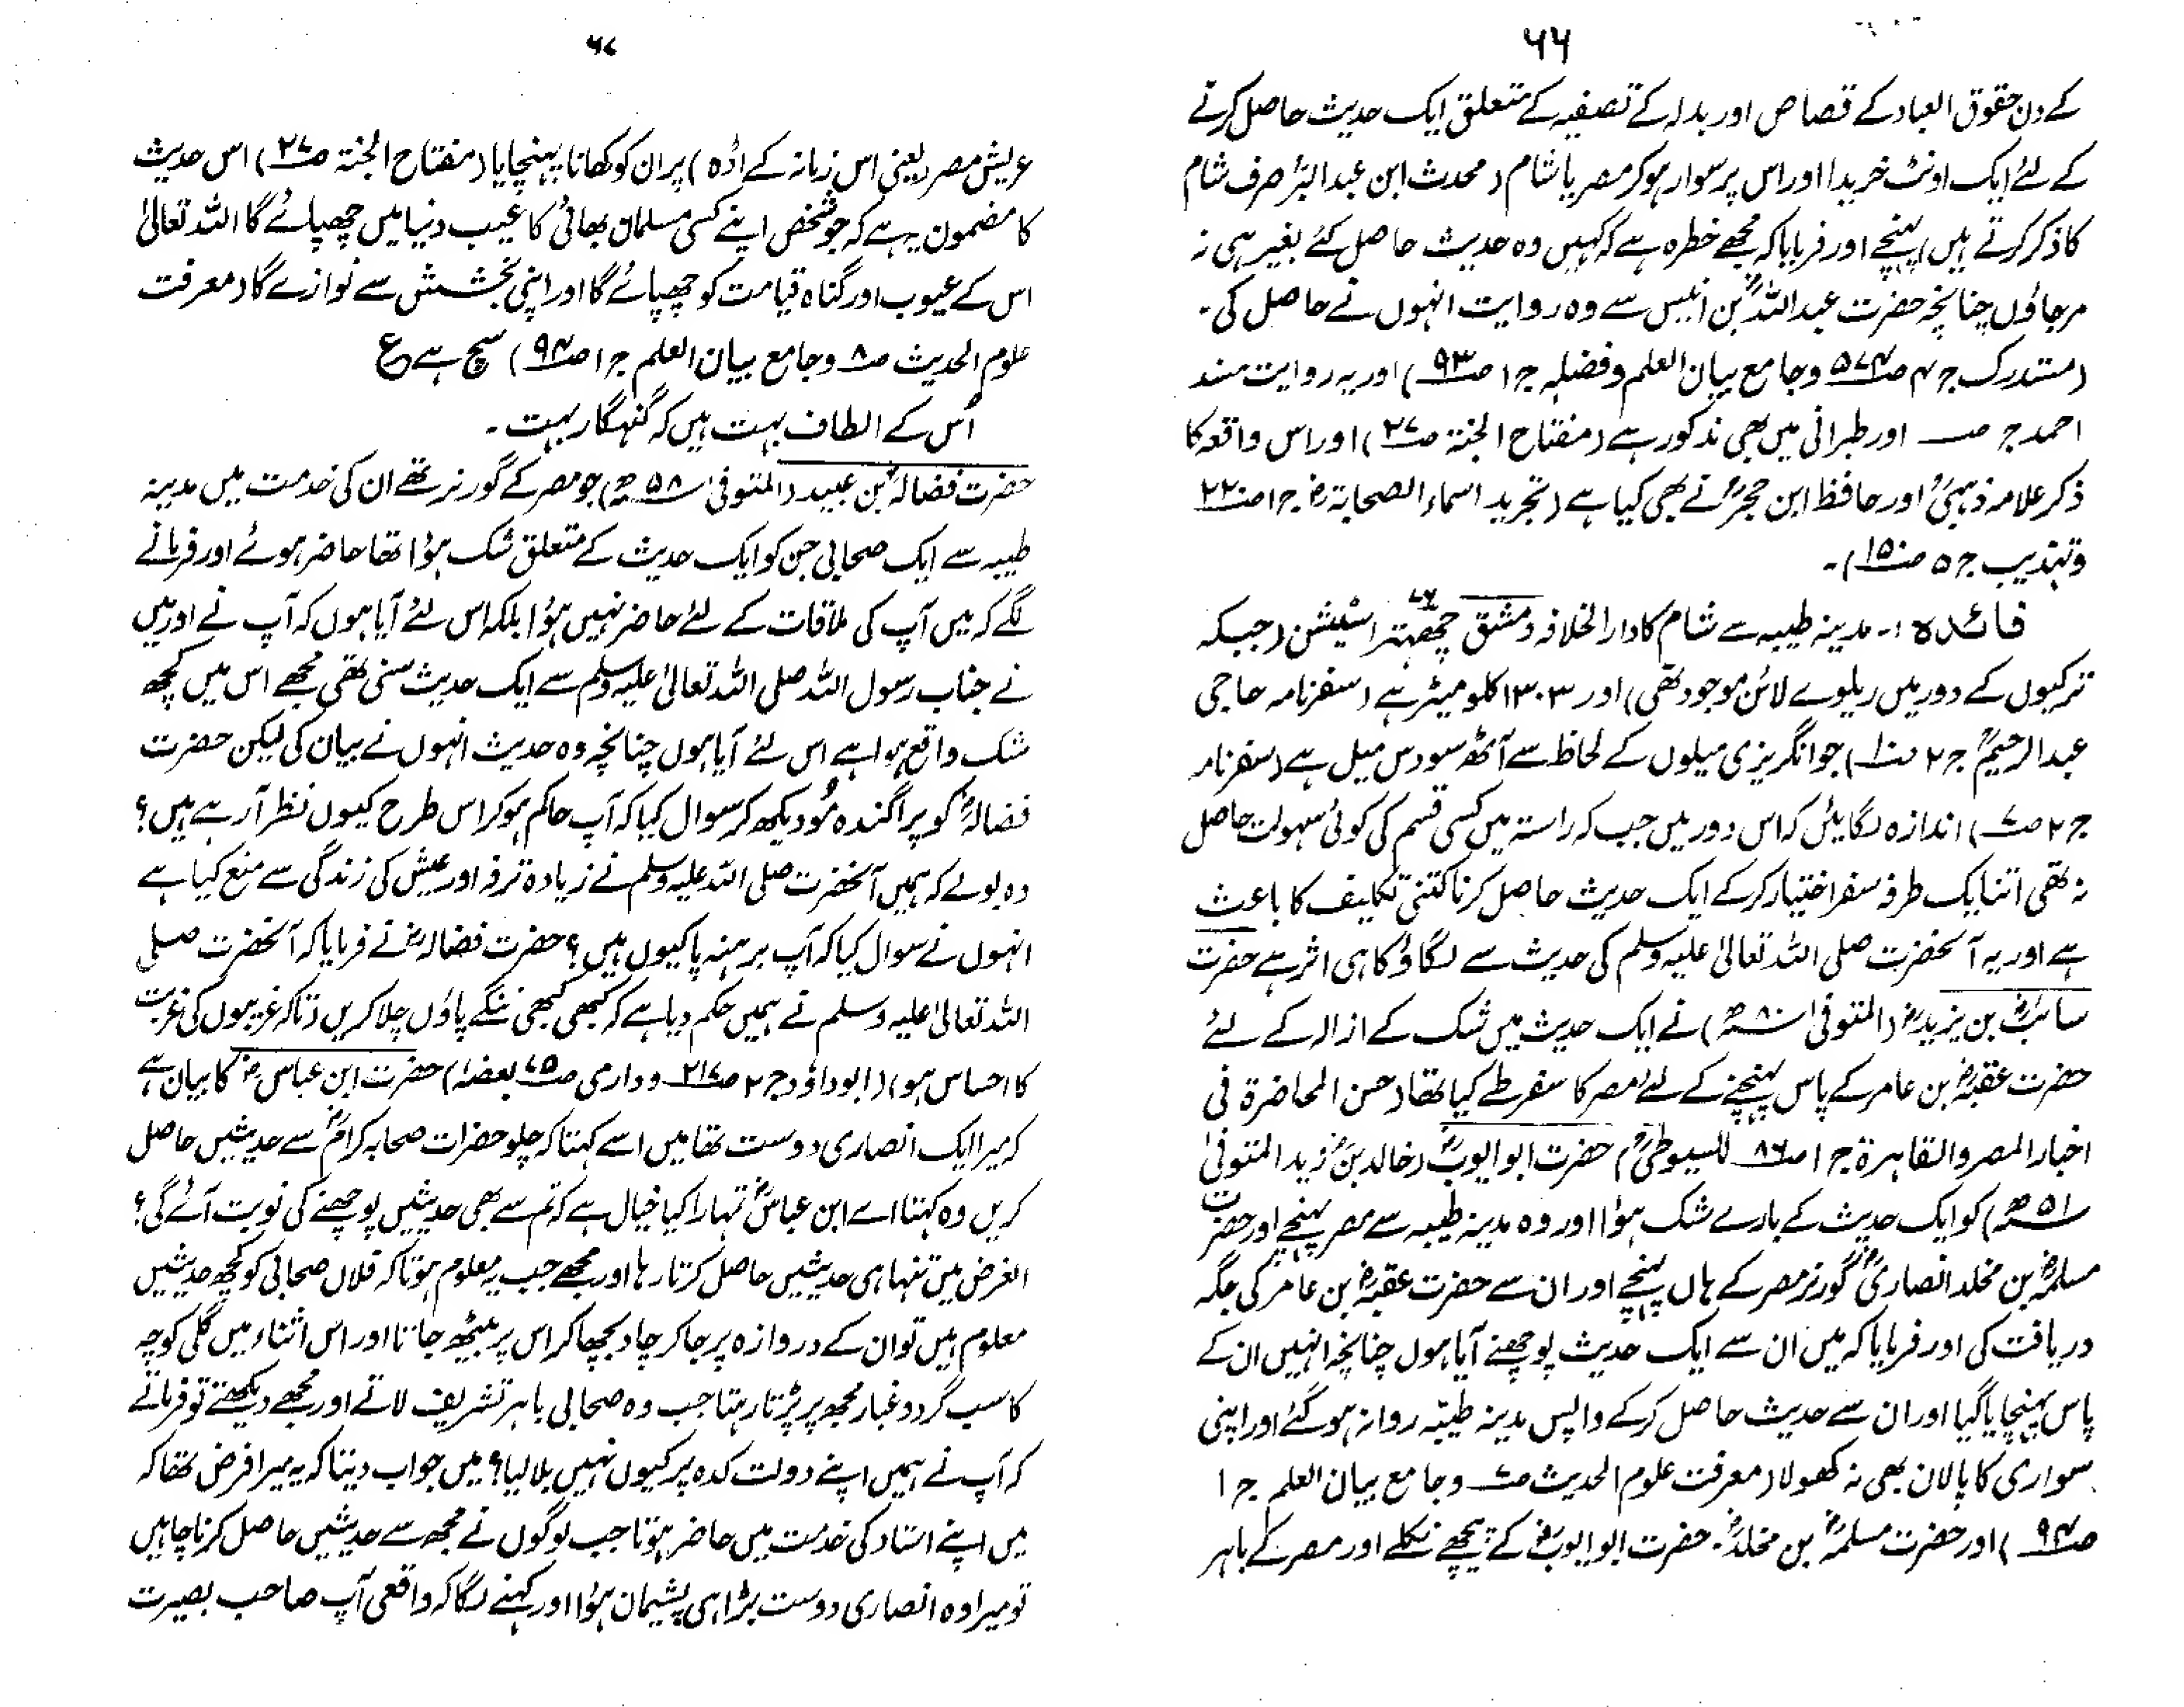 ۶۶
کے دن حقوق العباد کے قصاص اور بدلہ کے تصفیہ کے متعلق ایک حدیث حاصل کرنے
کے لئے ایک اونٹ خریدا اور اس پر سوار ہو کر مصر یا شام (محدث ابن عبدالبرؒ صرف شام
کا ذکر کرتے ہیں) پہنچے اور فرمایا کہ مجھے خطرہ ہے کہ کہیں وہ حدیث حاصل کئے بغیر ہی نہ
مر جاؤں چنانچہ حضرت عبداللہؓ بن انیس سے وہ روایت انہوں نے حاصل کی۔
(مستدرک ج۴ ص۵۷۴ وجامع بیان العلم وفضلہ ج۱ ص۹۳) اور یہ روایت مسند
احمد ج ص اور طبرانی میں بھی مذکور ہے (مفتاح الجنۃ ص۲۷) اور اس واقعہ کا
ذکر علامہ ذہبیؒ اور حافظ ابن حجرؒ نے بھی کیا ہے (تجرید اسماء الصحابۃؓ ج۱ ص۲۲۰
وتہذیب ج۵ ص۱۵۰)۔
فائدہ :۔ مدینہ طیبہ سے شام کا دارالخلافہ دمشق چھہتر ۷۶ اسٹیشن (جبکہ
ترکیوں کے دور میں ریلوے لائن موجود تھی) اور ۱۳۰۳ کلومیٹر ہے (سفرنامہ حاجی
عبدالرحیمؒ ج۲ ص۱۰) جو انگریزی میلوں کے لحاظ سے آٹھ سو دس میل ہے (سفرنامہ
ج۲ ص۷) اندازہ لگایئں کہ اس دور میں جب کہ راستہ میں کسی قسم کی کوئی سہولت حاصل
نہ تھی اتنا یک طرفہ سفر اختیار کرکے ایک حدیث حاصل کرنا کتنی تکلیف کا باعث
ہے اور یہ آنحضرت صلی اللہ تعالیٰ علیہ وسلم کی حدیث سے لگاؤ کا ہی اثر ہے حضرت
سائبؓ بن یزیدؓ (المتوفیٰ ۸۰ھ) نے ایک حدیث میں شک کے ازالہ کے لئے
حضرت عقبہؓ بن عامر کے پاس پہنچنے کے لئے مصر کا سفر طے کیا تھا (حسن المحاضرۃ فی
اخبار المصر والقاہرۃ ج۱ ص۸۶ للسیوطیؒ) حضرت ابو ایوبؓ (خالد بنؓ زید المتوفیٰ
۵۱ھ) کو ایک حدیث کے بارے شک ہوا اور وہ مدینہ طیبہ سے مصر پہنچے اور حضرت
مسلمہؓ بن مخلد انصاریؓ گورنر مصر کے ہاں پہنچے اور ان سے حضرت عقبہؓ بن عامر کی جگہ
دریافت کی اور فرمایا کہ میں ان سے ایک حدیث پوچھنے آیا ہوں چنانچہ انہیں ان کے
پاس پہنچایا گیا اور ان سے حدیث حاصل کرکے واپس مدینہ طیبہ روانہ ہو گئے اور اپنی
سواری کا پالان بھی نہ کھولا (معرفت علوم الحدیث ص۷ وجامع بیان العلم ج۱
ص۹۴) اور حضرت مسلمہؓ بن مخلدؓ۔ حضرت ابو ایوبؓ کے پیچھے نکلے اور مصر کے باہر
۶۷
عریش مصر (یعنی اس زمانہ کے اڈہ) پر ان کو کھانا پہنچایا (مفتاح الجنۃ ص۲۷) اس حدیث
کا مضمون یہ ہے کہ جو شخص اپنے کسی مسلمان بھائی کا عیب دنیا میں چھپائے گا اللہ تعالیٰ
اس کے عیوب اور گناہ قیامت کو چھپائے گا اور اپنی بخشش سے نوازے گا (معرفت
علوم الحدیث ص۸ وجامع بیان العلم ج۱ ص۹۴) سچ ہے ع
اُس کے الطاف بہت ہیں کہ گنہگار بہت۔
حضرت فضالہؓ بن عبید (المتوفیٰ ۵۸ھ) جو مصر کے گورنر تھے ان کی خدمت میں مدینہ
طیبہ سے ایک صحابی جن کو ایک حدیث کے متعلق شک ہوا تھا حاضر ہوئے اور فرمانے
لگے کہ میں آپ کی ملاقات کے لئے حاضر نہیں ہوا بلکہ اس لئے آیا ہوں کہ آپ نے اور میں
نے جناب رسول اللہ صلی اللہ تعالیٰ علیہ وسلم سے ایک حدیث سنی تھی مجھے اس میں کچھ
شک واقع ہوا ہے اس لئے آیا ہوں چنانچہ وہ حدیث انہوں نے بیان کی لیکن حضرت
فضالہؓ کو پراگندہ مُو دیکھ کر سوال کیا کہ آپ حاکم ہو کر اس طرح کیوں نظر آ رہے ہیں؟
وہ بولے کہ ہمیں آنحضرت صلی اللہ علیہ وسلم نے زیادہ ترفہ اور عیش کی زندگی سے منع کیا ہے
انہوں نے سوال کیا کہ آپ برہنہ پا کیوں ہیں؟ حضرت فضالہؓ نے فرمایا کہ آنحضرت صلی
اللہ تعالیٰ علیہ وسلم نے ہمیں حکم دیا ہے کہ کبھی کبھی ننگے پاؤں چلا کریں (تاکہ غریبوں کی غربت
کا احساس ہو) (ابوداؤد ج۲ ص۲۱۷ ودارمی ص۷۵ بعضہٗ) حضرت ابن عباسؓ کا بیان ہے
کہ میرا ایک انصاری دوست تھا میں اسے کہتا کہ چلو حضرات صحابہ کرامؓ سے حدیثیں حاصل
کریں وہ کہتا اے ابن عباسؓ تمہارا کیا خیال ہے کہ تم سے بھی حدیثیں پوچھنے کی نوبت آئے گی؟
الغرض میں تنہا ہی حدیثیں حاصل کرتا رہا اور مجھے جب یہ معلوم ہوتا کہ فلاں صحابی کو کچھ حدیثیں
معلوم ہیں تو ان کے دروازہ پر جا کر چادر بچھا کر اس پر بیٹھ جاتا اور اس اثناء میں گلی کوچہ
کا سب گرد و غبار مجھ پر پڑتا رہتا جب وہ صحابی باہر تشریف لاتے اور مجھے دیکھتے تو فرماتے
کہ آپ نے ہمیں اپنے دولت کدہ پر کیوں نہیں بلا لیا؟ میں جواب دیتا کہ یہ میرا فرض تھا کہ
میں اپنے استاد کی خدمت میں حاضر ہوتا جب لوگوں نے مجھ سے حدیثیں حاصل کرنا چاہیں
تو میرا وہ انصاری دوست بڑا ہی پشیمان ہوا اور کہنے لگا کہ واقعی آپ صاحب بصیرت